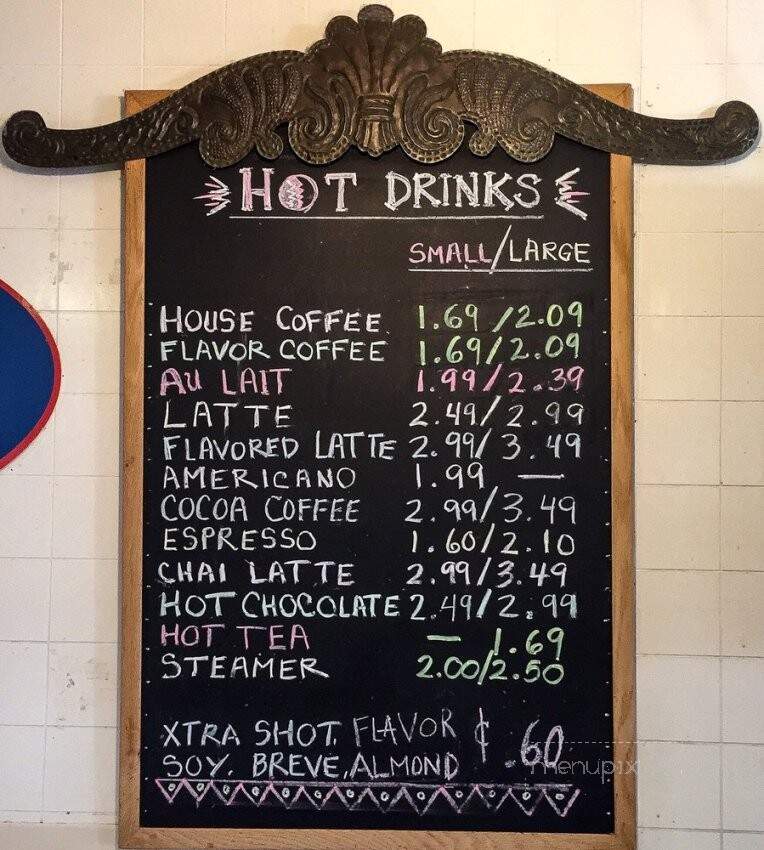 HOT DRINKS
SMALL/LARGE
HOUSE COFFEE 1.69/2.09
FLAVOR COFFEE 1.69/2.09
AU LAIT 1.99/2.39
LATTE 2.49/2.99
FLAVORED LATTE 2.99/3.49
AMERICANO 1.99 —
COCOA COFFEE 2.99/3.49
ESPRESSO 1.60/2.10
CHAI LATTE 2.99/3.49
HOT CHOCOLATE 2.49/2.99
HOT TEA — 1.69
STEAMER 2.00/2.50
XTRA SHOT, FLAVOR ¢ .60
SOY, BREVE, ALMOND
menupix